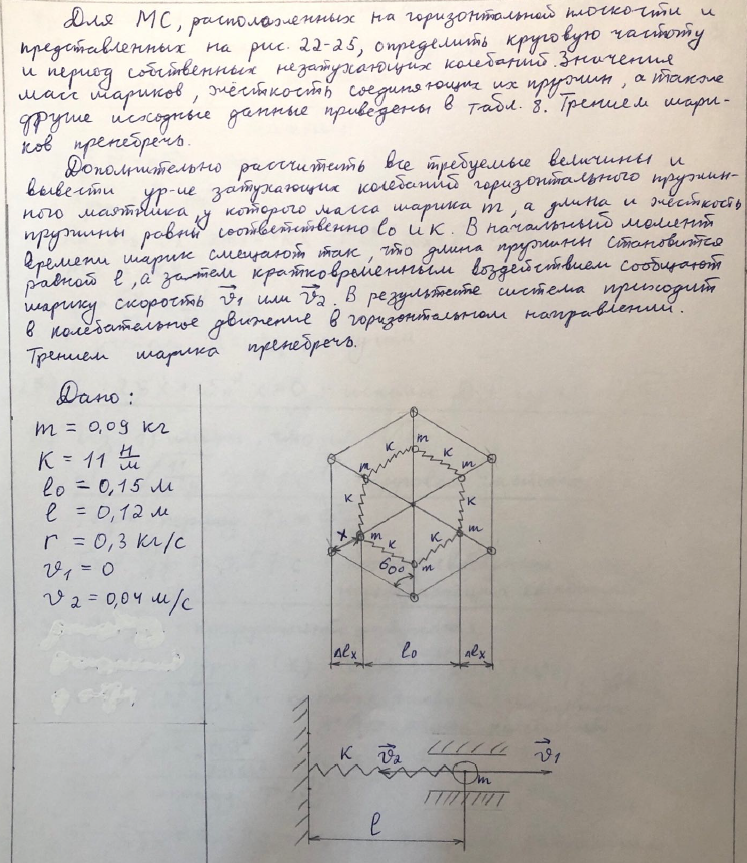 Для МС, расположенных на горизонтальной плоскости и
представленных на рис. 22-25, определить круговую частоту
и период собственных незатухающих колебаний. Значения
масс шариков, жёсткость соединяющих их пружин, а также
другие исходные данные приведены в табл. 8. Трением шари-
ков пренебречь.
Дополнительно рассчитать все требуемые величины и
вывести ур-ие затухающих колебаний горизонтального пружин-
ного маятника, у которого масса шарика m, а длина и жёсткость
пружины равны соответственно l₀ и К. В начальный момент
времени шарик смещают так, что длина пружины становится
равной l, а затем кратковременным воздействием сообщают
шарику скорость v⃗1 или v⃗2. В результате система приходит
в колебательное движение в горизонтальном направлении.
Трением шарика пренебречь.
Дано:
m = 0,09 кг
К = 11 Н/м
l₀ = 0,15 м
l = 0,12 м
r = 0,3 кг/с
v1 = 0
v2 = 0,04 м/с
m
К К
m m
К К
X m m
К К
60° m
Δlx l₀ Δlx
К v⃗2 v⃗1
m
l